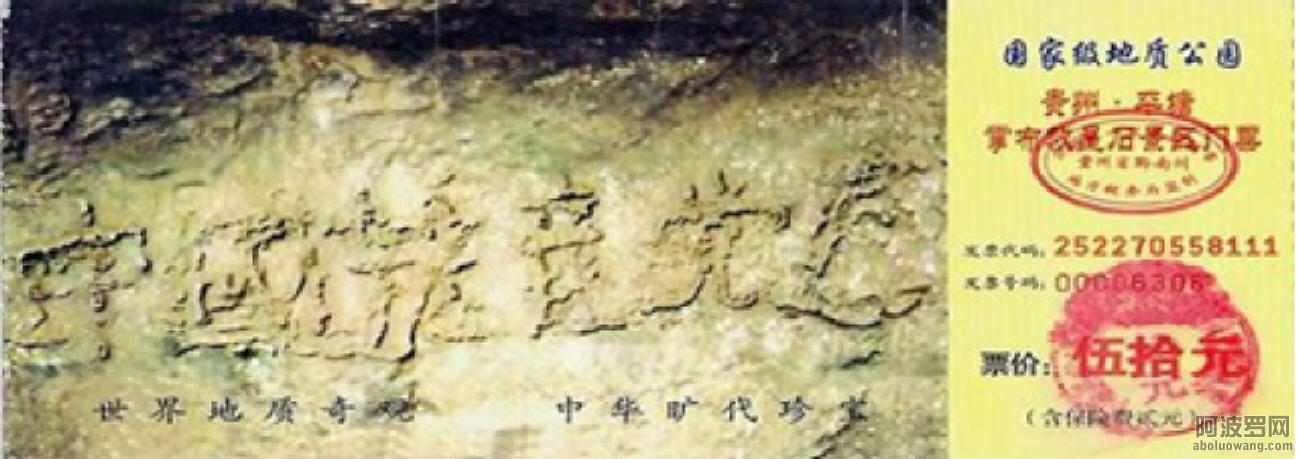 中國共产党亡
世界地质奇观 中华旷代珍宝
国家级地质公园
贵州·平塘
掌布救星石景区门票
贵州省黔南州
地方税务局监制
发票代码：252270558111
发票号码：00006306
票价：伍拾元
（含保险费贰元）
阿波罗网
aboluowang.com